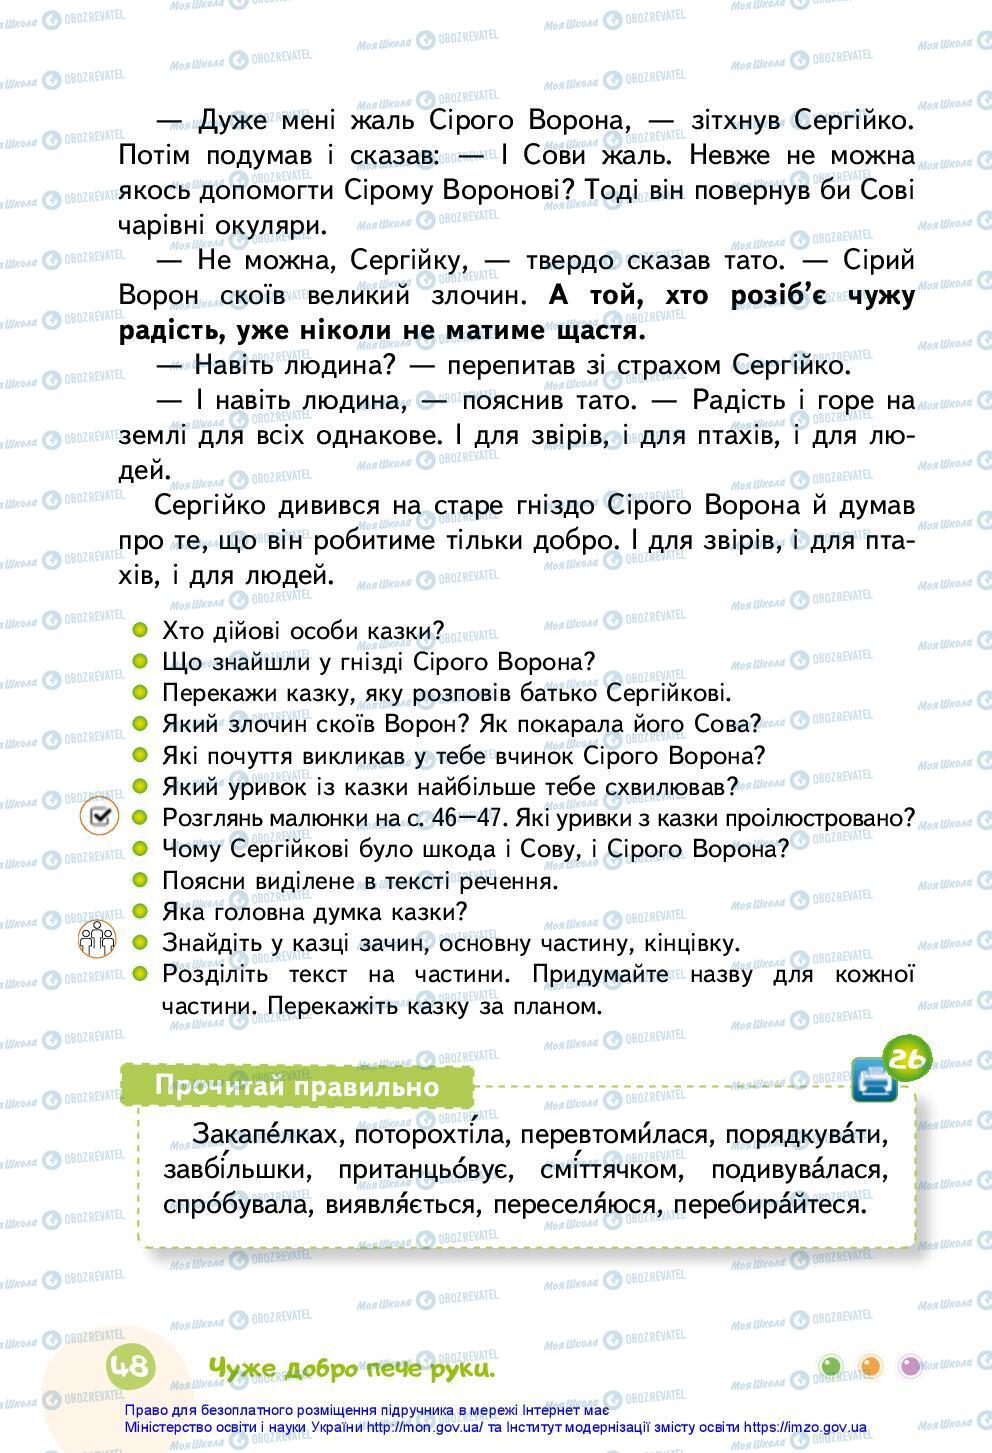 — Дуже мені жаль Сірого Ворона, — зітхнув Сергійко.
Потім подумав і сказав: — І Сови жаль. Невже не можна
якось допомогти Сірому Воронові? Тоді він повернув би Сові
чарівні окуляри.
— Не можна, Сергійку, — твердо сказав тато. — Сірий
Ворон скоїв великий злочин. А той, хто розіб’є чужу
радість, уже ніколи не матиме щастя.
— Навіть людина? — перепитав зі страхом Сергійко.
— І навіть людина, — пояснив тато. — Радість і горе на
землі для всіх однакове. І для звірів, і для птахів, і для лю-
дей.
Сергійко дивився на старе гніздо Сірого Ворона й думав
про те, що він робитиме тільки добро. І для звірів, і для пта-
хів, і для людей.
Хто дійові особи казки?
Що знайшли у гнізді Сірого Ворона?
Перекажи казку, яку розповів батько Сергійкові.
Який злочин скоїв Ворон? Як покарала його Сова?
Які почуття викликав у тебе вчинок Сірого Ворона?
Який уривок із казки найбільше тебе схвилював?
Розглянь малюнки на с. 46—47. Які уривки з казки проілюстровано?
Чому Сергійкові було шкода і Сову, і Сірого Ворона?
Поясни виділене в тексті речення.
Яка головна думка казки?
Знайдіть у казці зачин, основну частину, кінцівку.
Розділіть текст на частини. Придумайте назву для кожної
частини. Перекажіть казку за планом.
26
Прочитай правильно
Закапе́лках, поторохті́ла, перевтоми́лася, порядкува́ти,
завбі́льшки, пританцьо́вує, смі́ттячком, подивува́лася,
спро́бувала, виявля́ється, переселя́юся, перебира́йтеся.
48 Чуже добро пече руки.
Право для безоплатного розміщення підручника в мережі Інтернет має
Міністерство освіти і науки України http://mon.gov.ua/ та Інститут модернізації змісту освіти https://imzo.gov.ua
МояШкола OBOZREVATEL